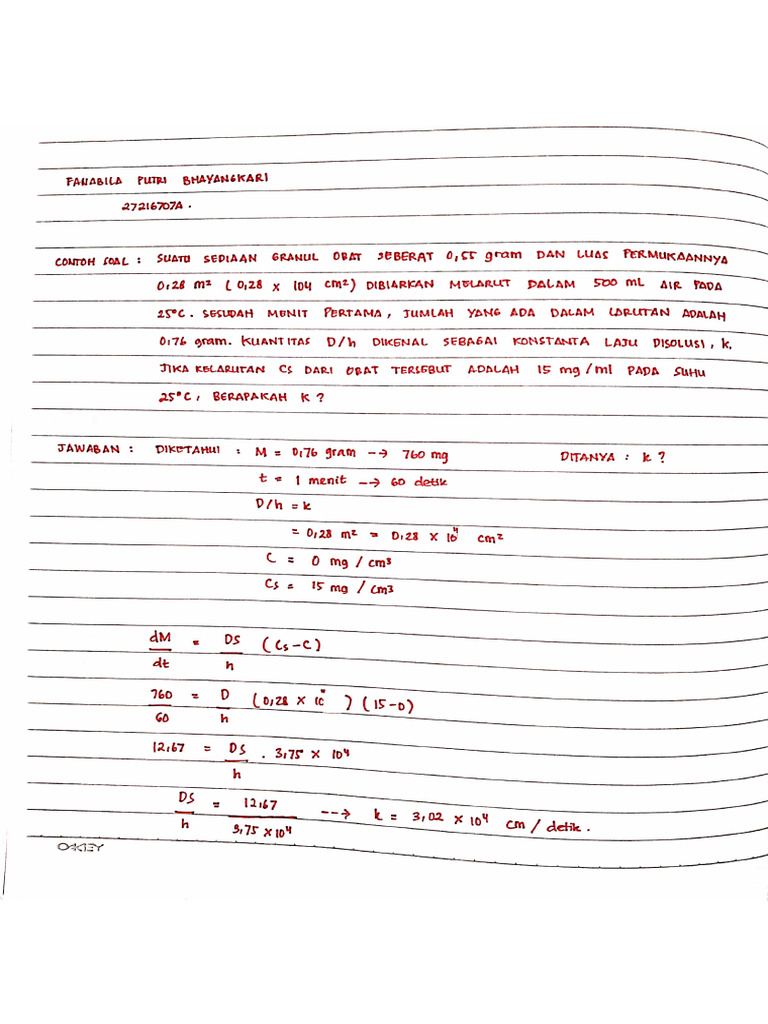 FANABILA PUTRI BHAYANGKARI
27216707A.
CONTOH SOAL : SUATU SEDIAAN GRANUL OBAT SEBERAT 0,55 gram DAN LUAS PERMUKAANNYA
0,28 m² (0,28 x 104 cm²) DIBIARKAN MELARUT DALAM 500 ml AIR PADA
25°C. SESUDAH MENIT PERTAMA, JUMLAH YANG ADA DALAM LARUTAN ADALAH
0,76 gram. KUANTITAS D/h DIKENAL SEBAGAI KONSTANTA LAJU DISOLUSI, k.
JIKA KELARUTAN CS DARI OBAT TERSEBUT ADALAH 15 mg/ml PADA SUHU
25°C, BERAPAKAH K ?
JAWABAN : DIKETAHUI : M = 0,76 gram --> 760 mg DITANYA : k ?
t = 1 menit --> 60 detik
D/h = k
= 0,28 m² = 0,28 x 10⁴ cm²
C = 0 mg / cm³
Cs = 15 mg / cm3
dM/dt = DS/h (Cs-C)
760/60 = D/h (0,28 x 10⁴) (15-0)
12,67 = DS/h . 3,75 x 10⁴
DS/h = 12,67/3,75 x 10⁴ --> k = 3,02 x 10⁴ cm / detik.
OAKLEY